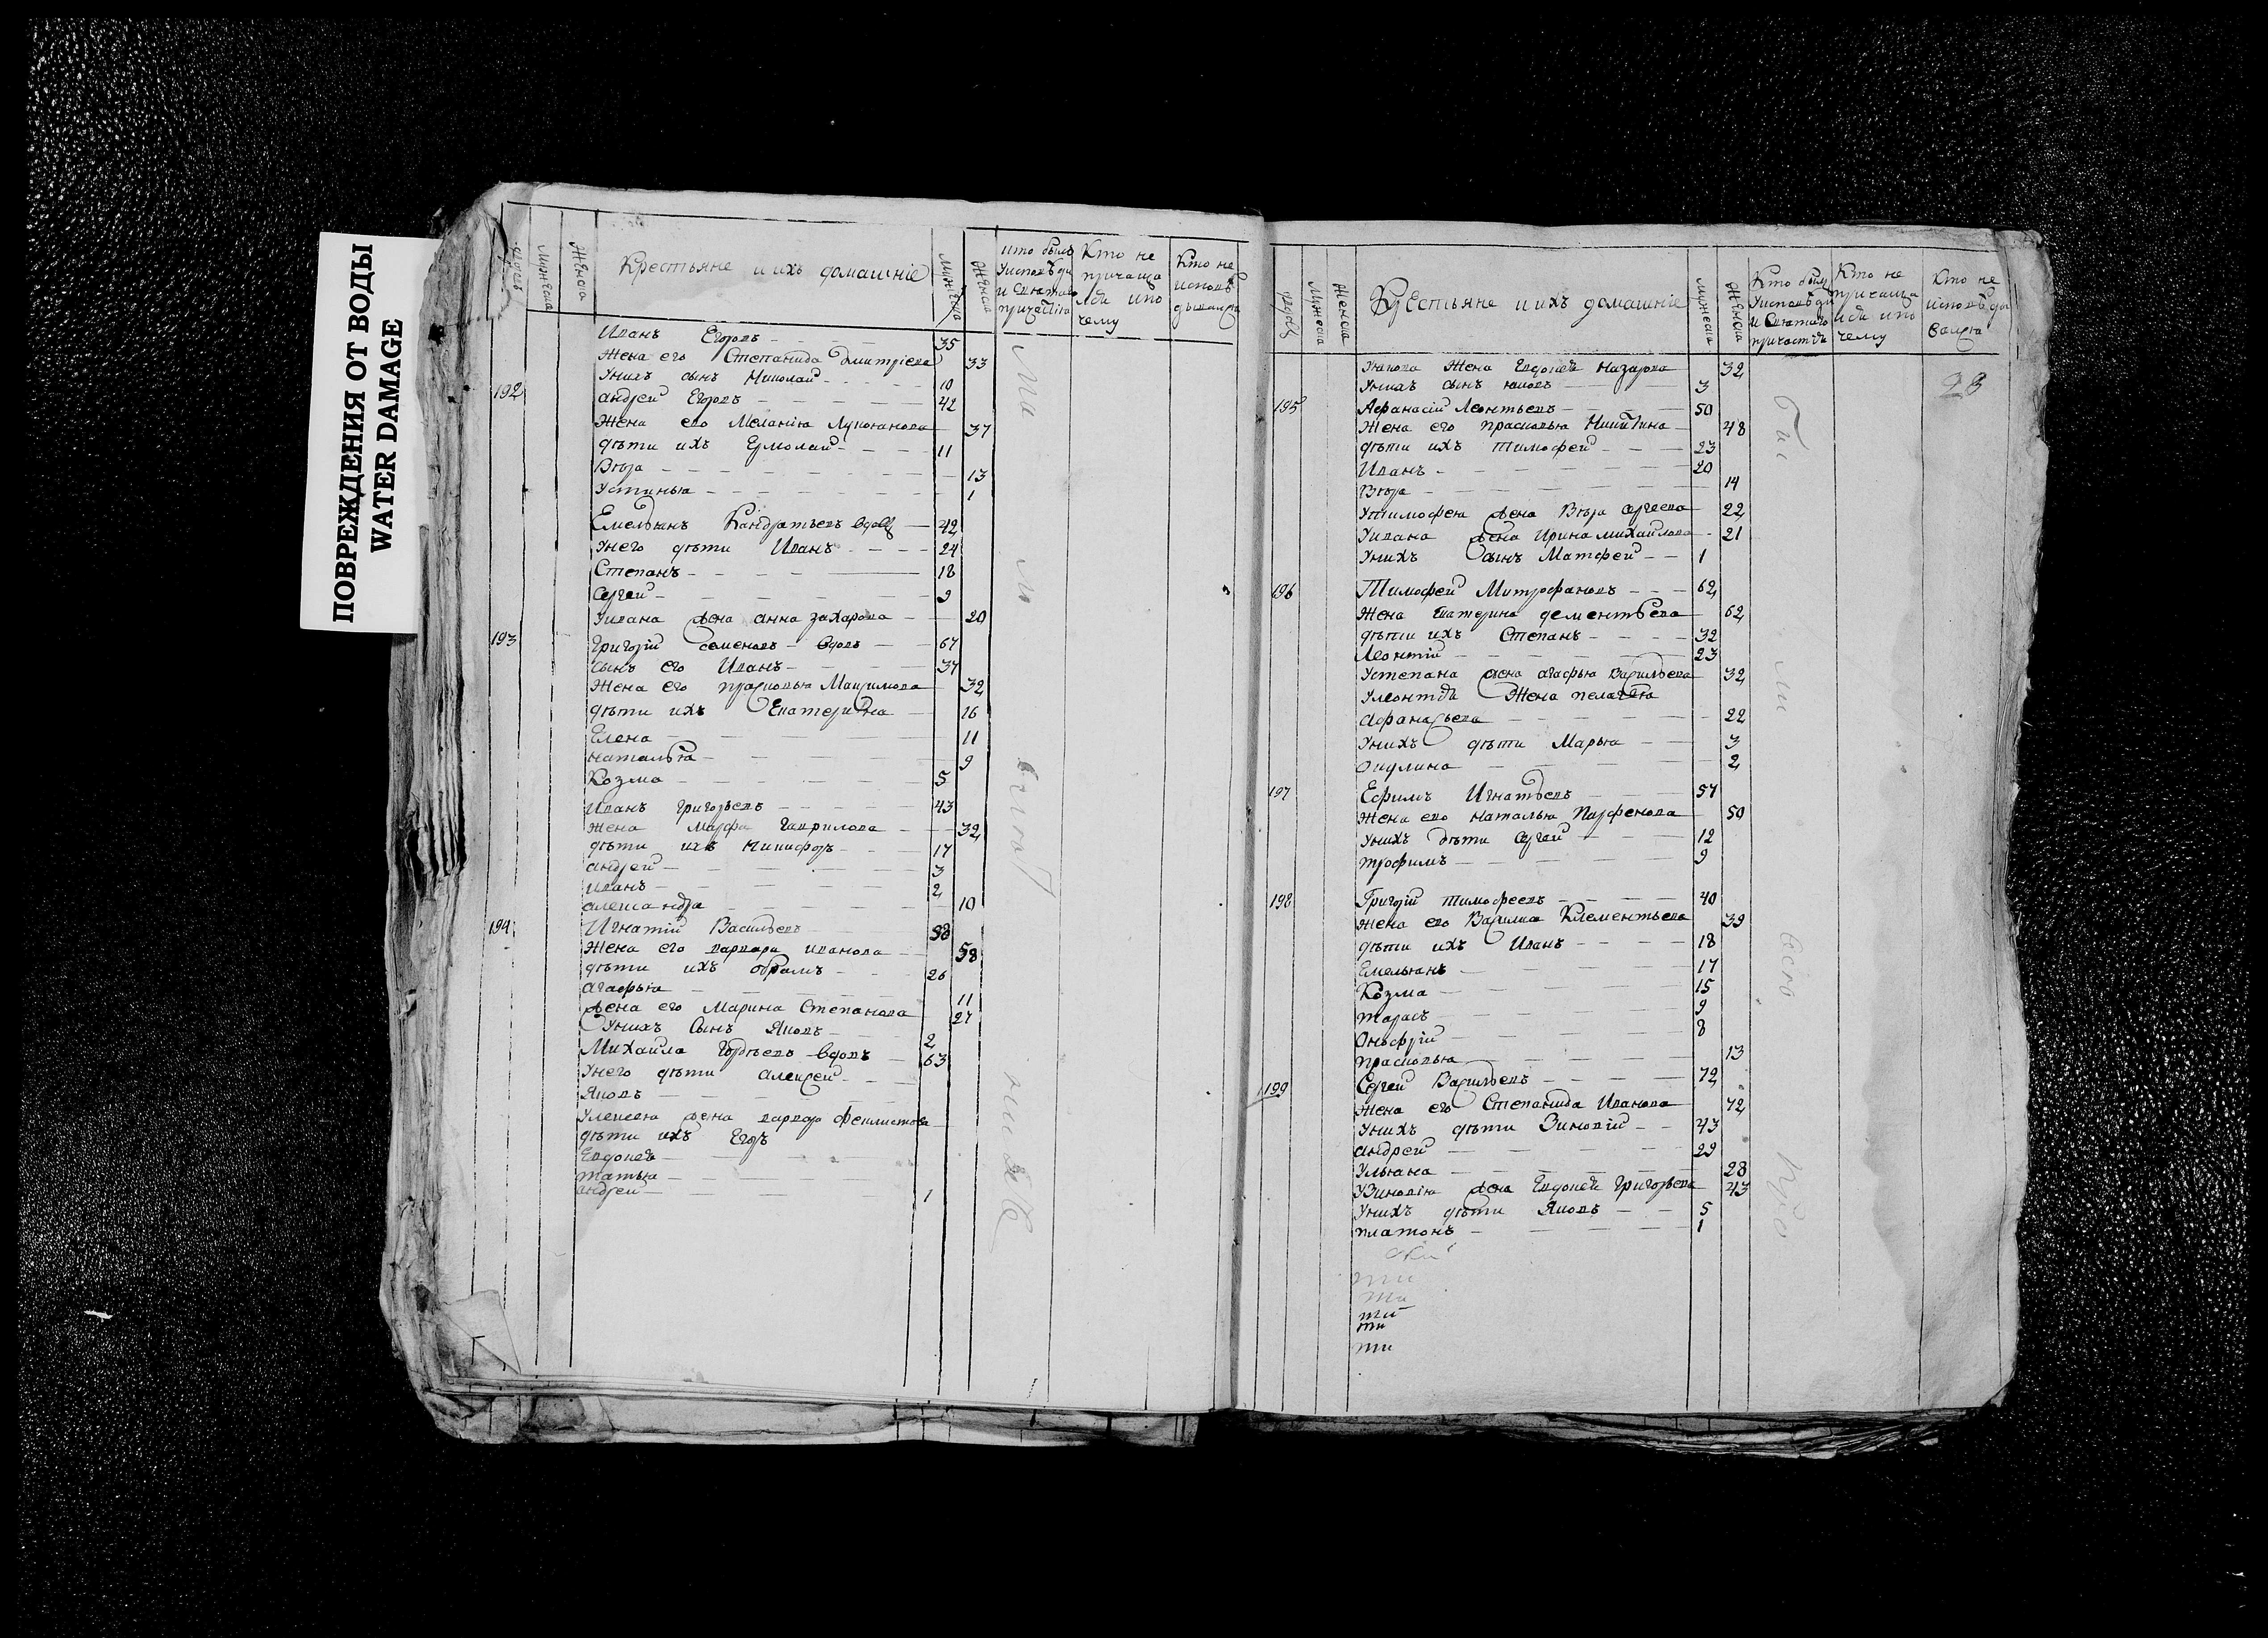 ПОВРЕЖДЕНИЯ ОТ ВОДЫ
WATER DAMAGE
дворовъ
Мужеска
Женска
Крестьяне и ихъ домашніе
Мужеска
Женска
Кто былъ у исповѣди и святаго причастія
Кто не причащался и по чему
Кто не исповѣдывался
Иванъ Егоровъ 35
Жена его Степанида Дмитріева 33
У нихъ сынъ Николай 10
192 Андрей Егоровъ 42
Жена его Меланія Лукоянова 37
Дѣти ихъ Ермолай 11
Вѣра 13
Устинья 1
Емельянъ Кандратьевъ вдовъ 42
У него дѣти Иванъ 24
Степанъ 18
Сергей 9
У Ивана жена Анна Захарова 20
193 Григорій Семеновъ вдовъ 67
Сынъ его Иванъ 37
Жена его Прасковья Максимова 32
Дѣти ихъ Екатерина 16
Елена 11
Наталья 9
Козма 5
Иванъ Григорьевъ 43
Жена Марфа Гаврилова 32
Дѣти ихъ Никифоръ 17
Андрей 3
Иванъ 2
Александра 10
194 Игнатій Васильевъ 58
Жена его Варвара Иванова 58
Дѣти ихъ Обрамъ 26
Агафья 11
Жена его Марина Степанова 27
У нихъ сынъ Яковъ 2
Михайла Гордѣевъ вдовъ 63
У него дѣти Алексей
Яковъ
У Алексея жена Варвара Феклистова
Дѣти ихъ Егоръ
Евдокея
Татья
Андрей 1
дворовъ
Мужеска
Женска
Крестьяне и ихъ домашніе
Мужеска
Женска
Кто былъ у исповѣди и святаго причастія
Кто не причащался и по чему
Кто не исповѣдывался
28
У Якова жена Евдокея Назарова 32
У нихъ сынъ Яковъ 3
195 Афанасій Леонтьевъ 50
Жена его Прасковья Никитина 48
Дѣти ихъ Тимофей 23
Иванъ 20
Вѣра 14
У Тимофея жена Вѣра Сергеева 22
У Ивана жена Ирина Михайлова 21
У нихъ сынъ Матфей 1
196 Тимофей Митрофановъ 62
Жена Екатерина Дементьева 62
Дѣти ихъ Степанъ 32
Леонтій 23
У Степана жена Агафья Васильева 32
У Леонтья жена Пелагея
Афанасьева 22
У нихъ дѣти Марья 3
Окулина 2
197 Ефимъ Игнатьевъ 57
Жена его Наталья Парфенова 50
У нихъ дѣти Сергей 12
Трофимъ 9
198 Григорій Тимофеевъ 40
Жена его Василиса Клементьева 39
Дѣти ихъ Иванъ 18
Емельянъ 17
Козма 15
Тарасъ 9
Онофрій 8
Прасковья 13
199 Сергей Васильевъ 72
Жена его Степанида Иванова 72
У нихъ дѣти Зиновій 43
Андрей 29
Ульяна 28
У Зиновія жена Евдокея Григорьева 43
У нихъ дѣти Яковъ 5
Платонъ 1
ти
ти
ти
ти
ти